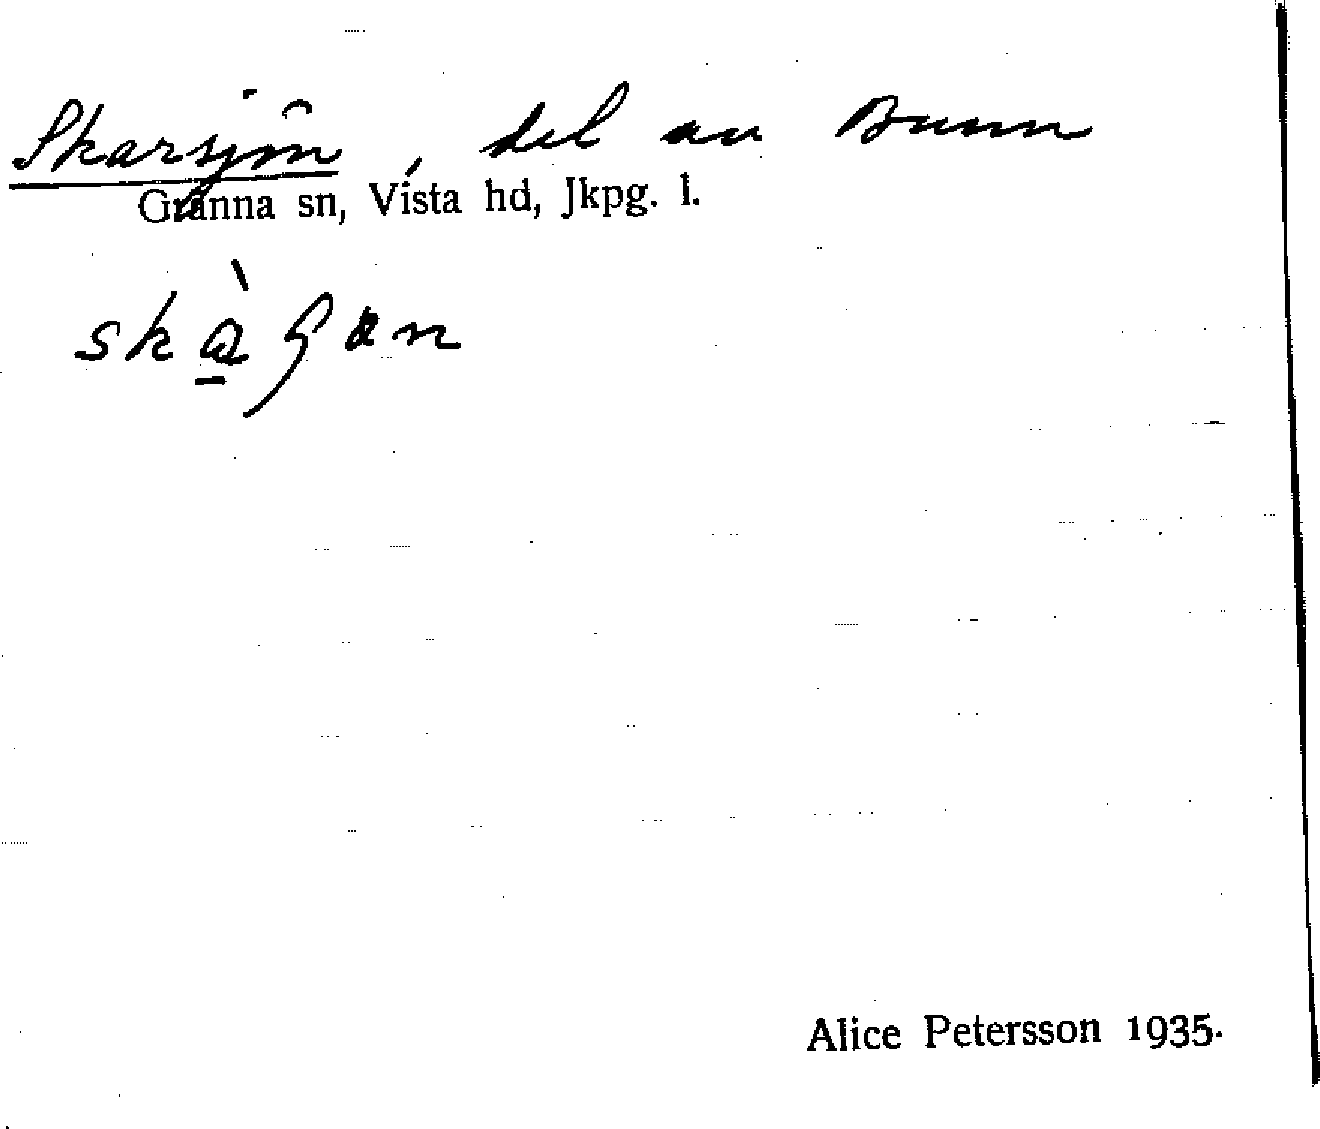 Skarsjön, del av Bunn
Gränna sn, Vista hd, Jkpg. l.
Alice Petersson 1935.